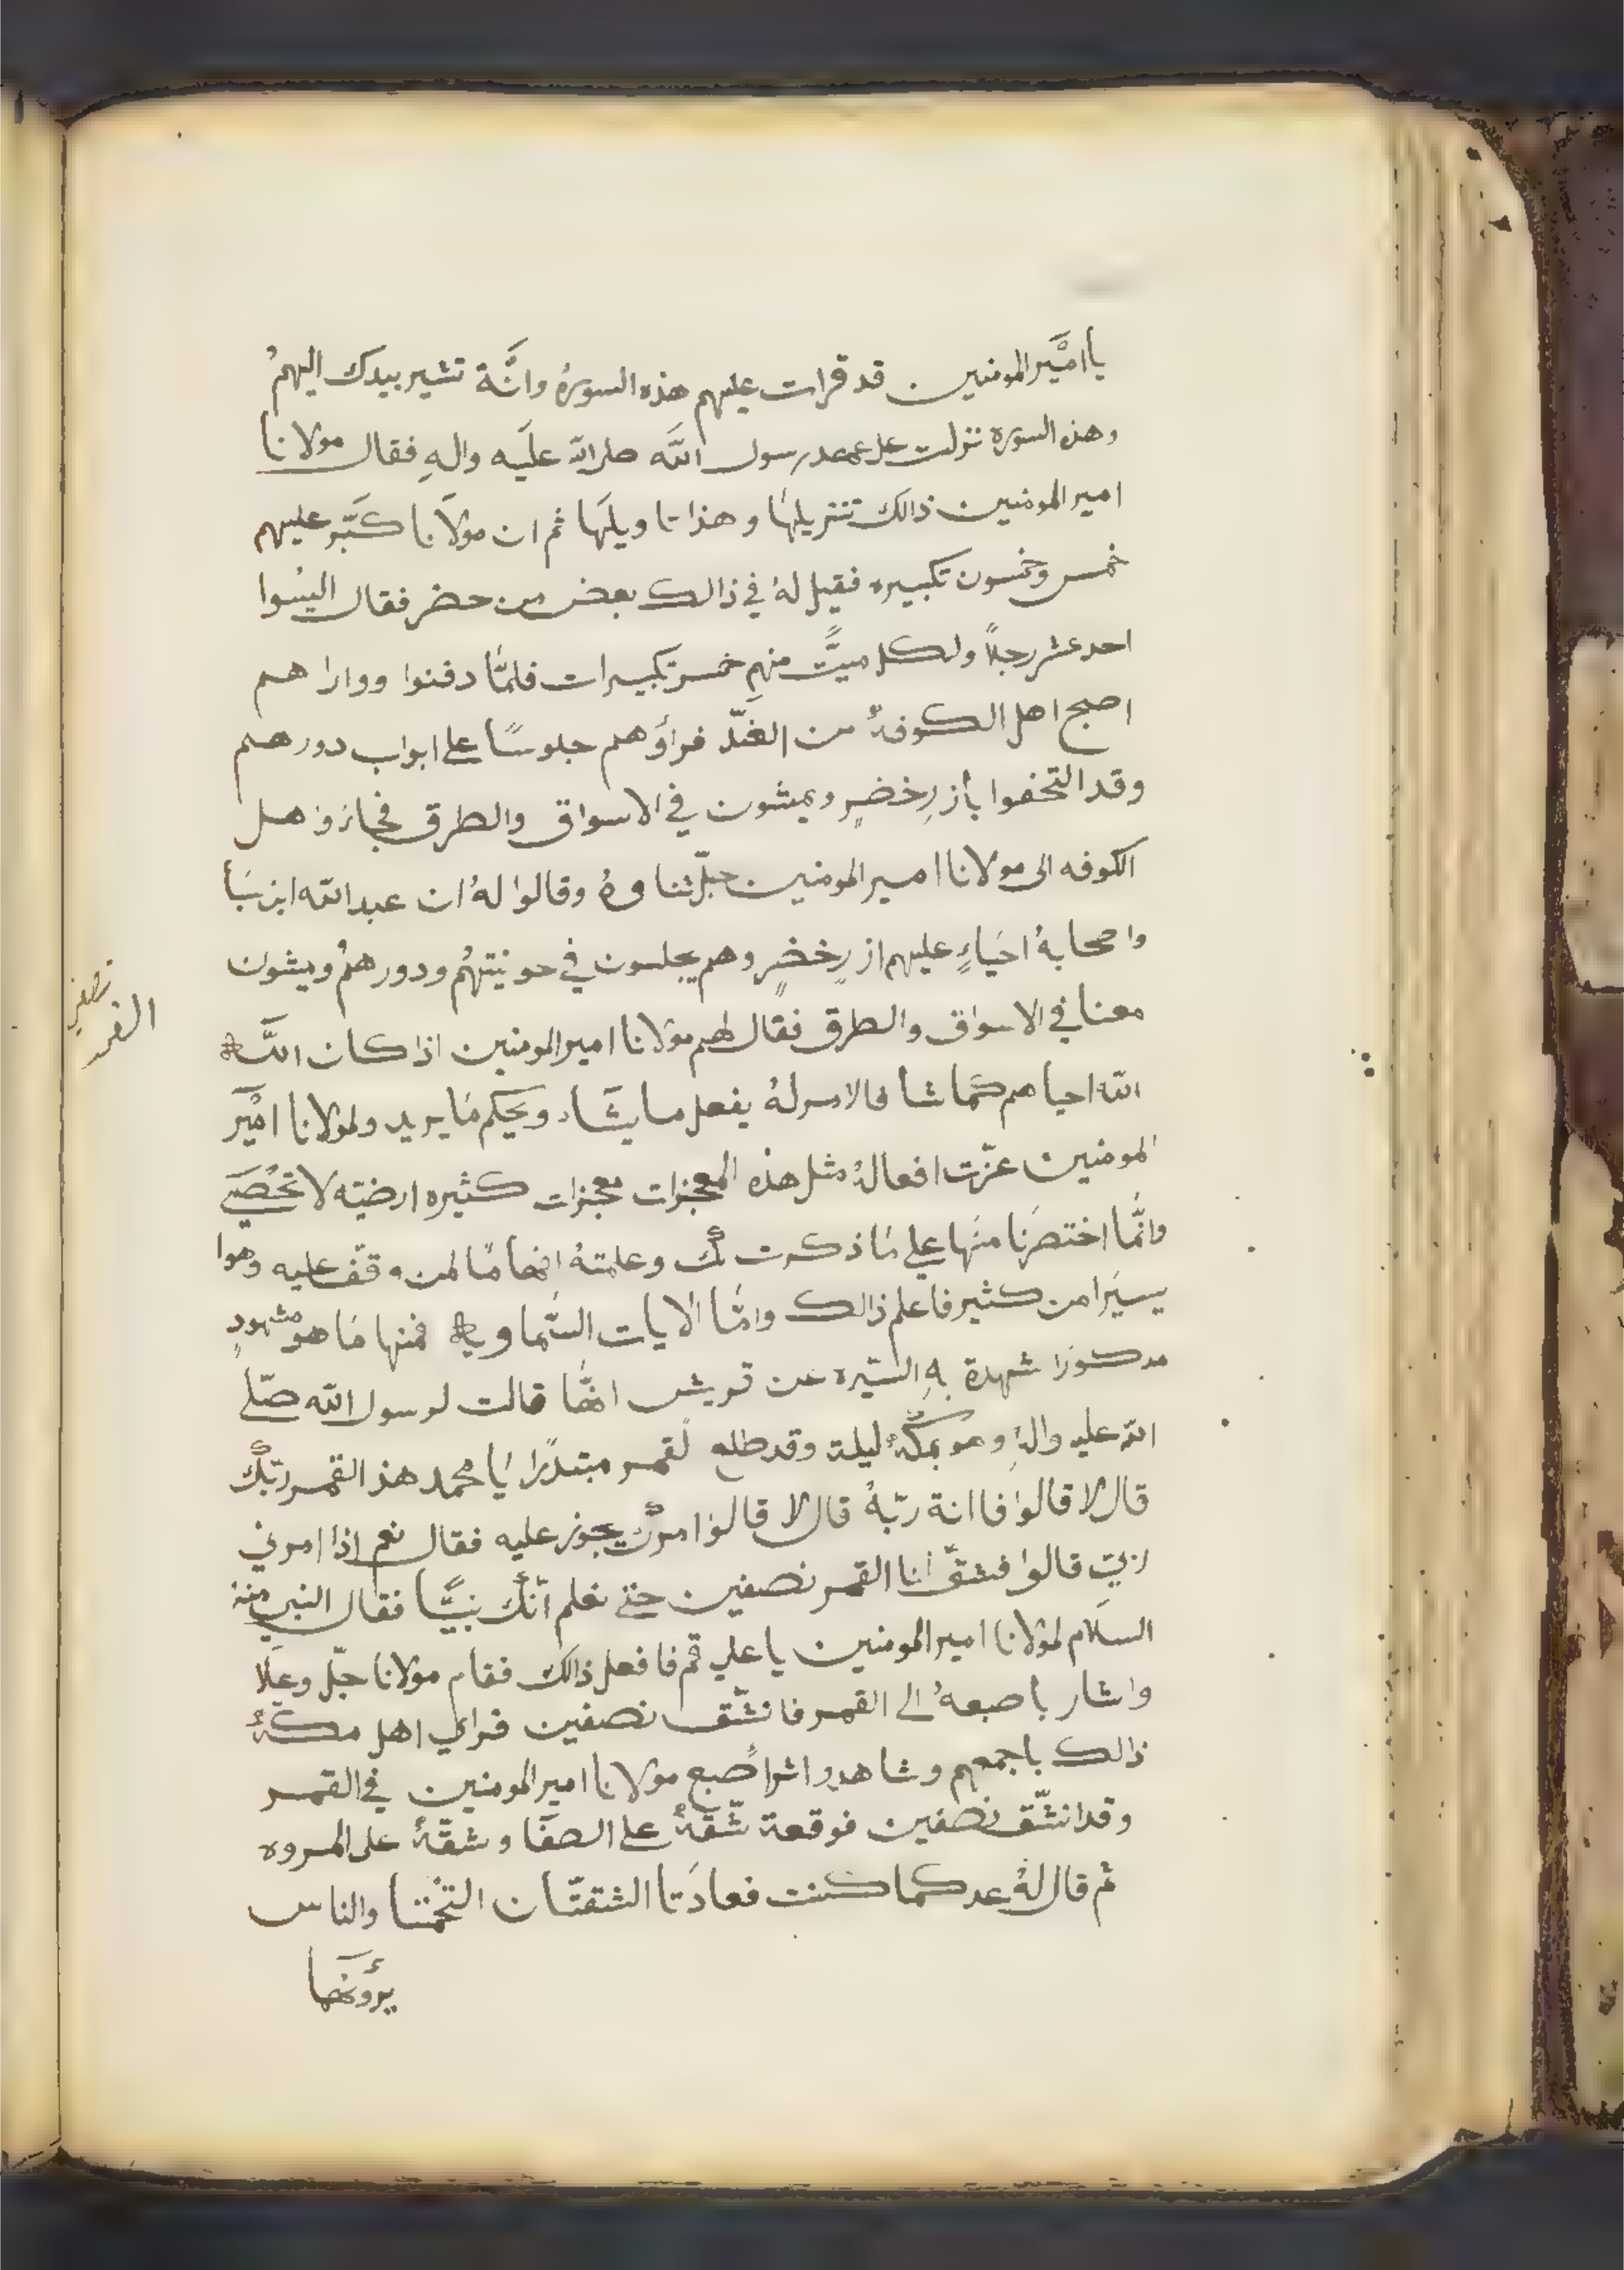 يا امير المومنين قد قرات عليهم هذه السورة وانة تشير بيدك اليهم
وهذه السورة نزلت على عهد رسول الله صلى الله عليه واله فقال مولانا
امير المومنين ذالك تنزيلها وهذا تاويلها ثم ان مولانا كبر عليهم
خمس وخمسون تكبيره فقيل له في ذالك بعض من حضر فقال اليسوا
احد عشر رجلاً ولكل ميت منهم خمس تكبيرات فلما دفنوا وواراهم
اصبح اهل الكوفة من الغد فراؤهم جلوسًا على ابواب دورهم
وقد التحفوا بأزرٍ خضرٍ ويمشون في الاسواق والطرق فجاؤ اهل
الكوفه الى مولانا امير المومنين جل ثناوه وقالوا له ان عبد الله ابن سبا
واصحابه احياءٍ عليهم ازرٍ خضرٍ وهم يجلسون في حونيتهم ودورهم ويمشون
معنا في الاسواق والطرق فقال لهم مولانا امير المومنين اذا كان الله
الله احياهم كما شا فالامر له يفعل ما يشاء ويحكم ما يريد ولمولانا امير
المومنين عزت افعاله مثل هذه المعجزات معجزات كثيره ارضيه لا تحصى
وانما اختصرنا منها على ما ذكرت لك وعلمته افهامًا لمن وقف عليه وهوا
يسيرا من كثير فاعلم ذالك واما الايات السماوية فمنها ما هو مشهودٍ
مدكورًا شهدة به السيره عن قريش انها قالت لرسول الله صلى
الله عليه واله وهو بمكة ليلة وقد طلع لقمر مبتدرًا يا محمد هذا القمر ربك
قال لا قالوا فاانة ربه قال لا قالوا امرك يجوز عليه فقال نعم اذا امرني
ربي قالوا فشق لنا القمر نصفين حتى نعلم أنك نبيًا فقال النبي منه
السلام لمولانا امير المومنين يا علي قم فافعل ذالك فقام مولانا جل وعلا
واشار باصبعه الى القمر فانشق نصفين فراي اهل مكة
ذالك باجمعهم وشاهدوا اثر اصبع مولانا امير المومنين في القمر
وقد انشق نصفين فوقعة شقة على الصفا وشقة على المروه
ثم قال له عد كما كنت فعادتا الشقتان التحمتا والناس
يرؤنها
نصفي
القمر